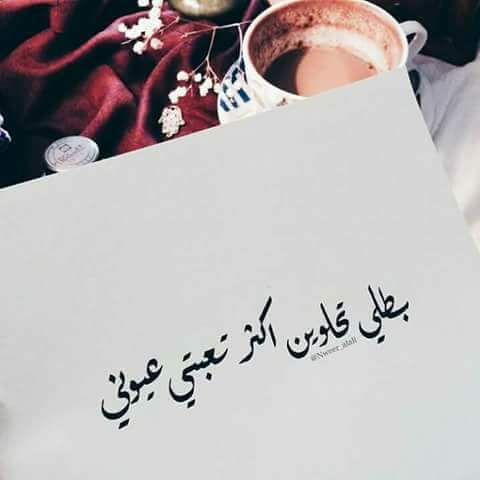 بطلي تحلوين اكثر تعبتي عيوني
@Nweer_alali